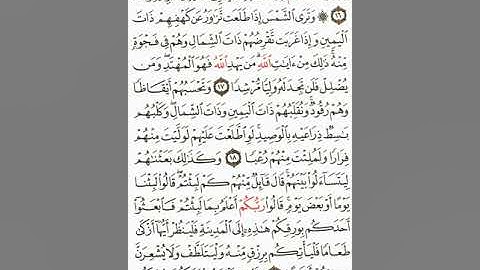 ﴿١٦﴾ ۞ وَتَرَى الشَّمْسَ إِذَا طَلَعَت تَّزَٰوَرُ عَن كَهْفِهِمْ ذَاتَ
الْيَمِينِ وَإِذَا غَرَبَت تَّقْرِضُهُمْ ذَاتَ الشِّمَالِ وَهُمْ فِي فَجْوَةٍ
مِّنْهُ ۚ ذَٰلِكَ مِنْ ءَايَٰتِ اللَّهِ ۗ مَن يَهْدِ اللَّهُ فَهُوَ الْمُهْتَدِ ۖ وَمَن
يُضْلِلْ فَلَن تَجِدَ لَهُۥ وَلِيًّا مُّرْشِدًا ﴿١٧﴾ وَتَحْسَبُهُمْ أَيْقَاظًا
وَهُمْ رُقُودٌ ۚ وَنُقَلِّبُهُمْ ذَاتَ الْيَمِينِ وَذَاتَ الشِّمَالِ ۖ وَكَلْبُهُم
بَٰسِطٌ ذِرَاعَيْهِ بِالْوَصِيدِ ۚ لَوِ اطَّلَعْتَ عَلَيْهِمْ لَوَلَّيْتَ مِنْهُمْ
فِرَارًا وَلَمُلِئْتَ مِنْهُمْ رُعْبًا ﴿١٨﴾ وَكَذَٰلِكَ بَعَثْنَٰهُمْ
لِيَتَسَآءَلُوا بَيْنَهُمْ ۚ قَالَ قَآئِلٌ مِّنْهُمْ كَمْ لَبِثْتُمْ ۖ قَالُوا لَبِثْنَا
يَوْمًا أَوْ بَعْضَ يَوْمٍ ۚ قَالُوا رَبُّكُمْ أَعْلَمُ بِمَا لَبِثْتُمْ فَابْعَثُوٓا
أَحَدَكُم بِوَرِقِكُمْ هَٰذِهِۦٓ إِلَى الْمَدِينَةِ فَلْيَنظُرْ أَيُّهَآ أَزْكَىٰ
طَعَامًا فَلْيَأْتِكُم بِرِزْقٍ مِّنْهُ وَلْيَتَلَطَّفْ وَلَا يُشْعِرَنَّ